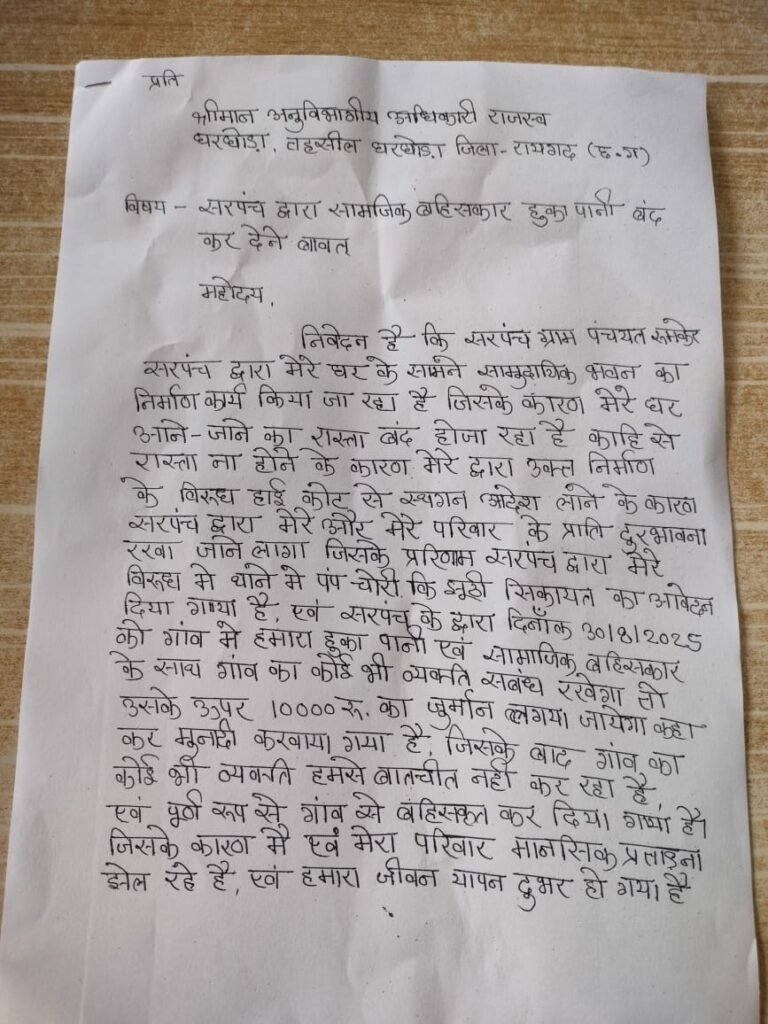 प्रति
श्रीमान अनुविभागीय अधिकारी राजस्व
घरघोड़ा, तहसील घरघोड़ा जिला - रायगढ (छ.ग)
विषय - सरपंच द्वारा सामजिक बहिसकार हुका पानी बंद
कर देने बावत्
महोदय,
निवेदन है कि सरपंच ग्राम पंचयत रुमकेर
सरपंच द्वारा मेरे घर के सामने सामुदायिक भवन का
निर्माण कार्य किया जा रहा है जिसके कारण मेरे घर
आने-जाने का रास्ता बंद होजा रहा है काहि से
रास्ता ना होने के कारण मेरे द्वारा उक्त निर्माण
के विरुध हाई कोट से स्थगन अदेश लाने के कारण
सरपंच द्वारा मेरे और मेरे परिवार के प्राति दुरभावना
रखा जाने लागा जिसके प्ररिणाम सरपंच द्वारा मेरे
विरुध मे थाने मे पंप चोरी कि झुठी सिकायत का आवेदन
दिया गया है, एवं सरपंच के द्वारा दिनाँक 30/8/2025
को गांव मे हमारा हुका पानी एवं सामाजिक बहिसकार
के साथ गांव का कोई भी व्यक्ति सबंध रखेगा तो
उसके ऊपर 10000 रु. का जुर्मान लगया जायेगा कहा
कर मुनादी करवाया गया है, जिसके बाद गांव का
कोई भी व्यक्ती हमसे बातचीत नही कर रहा है
एवं पूर्ण रूप से गांव से बहिसकृत कर दिया गया है।
जिसके कारण मै एवं मेरा परिवार मानसिक प्रताड़ना
झेल रहे है, एवं हमारा जीवन यापन दुभर हो गया है